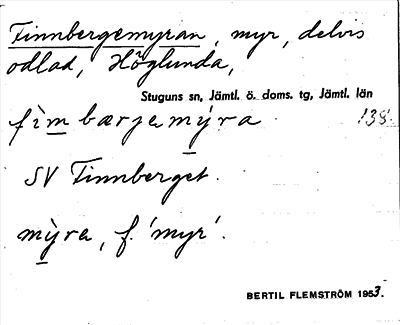 Finnbergemyran, myr, delvis
odlad, Höglunda,
Stuguns sn, Jämtl. ö. doms. tg, Jämtl. län
fìm bærjemýra 138.
SV Finnberget.
mỳra, f. 'myr'.
BERTIL FLEMSTRÖM 1953.